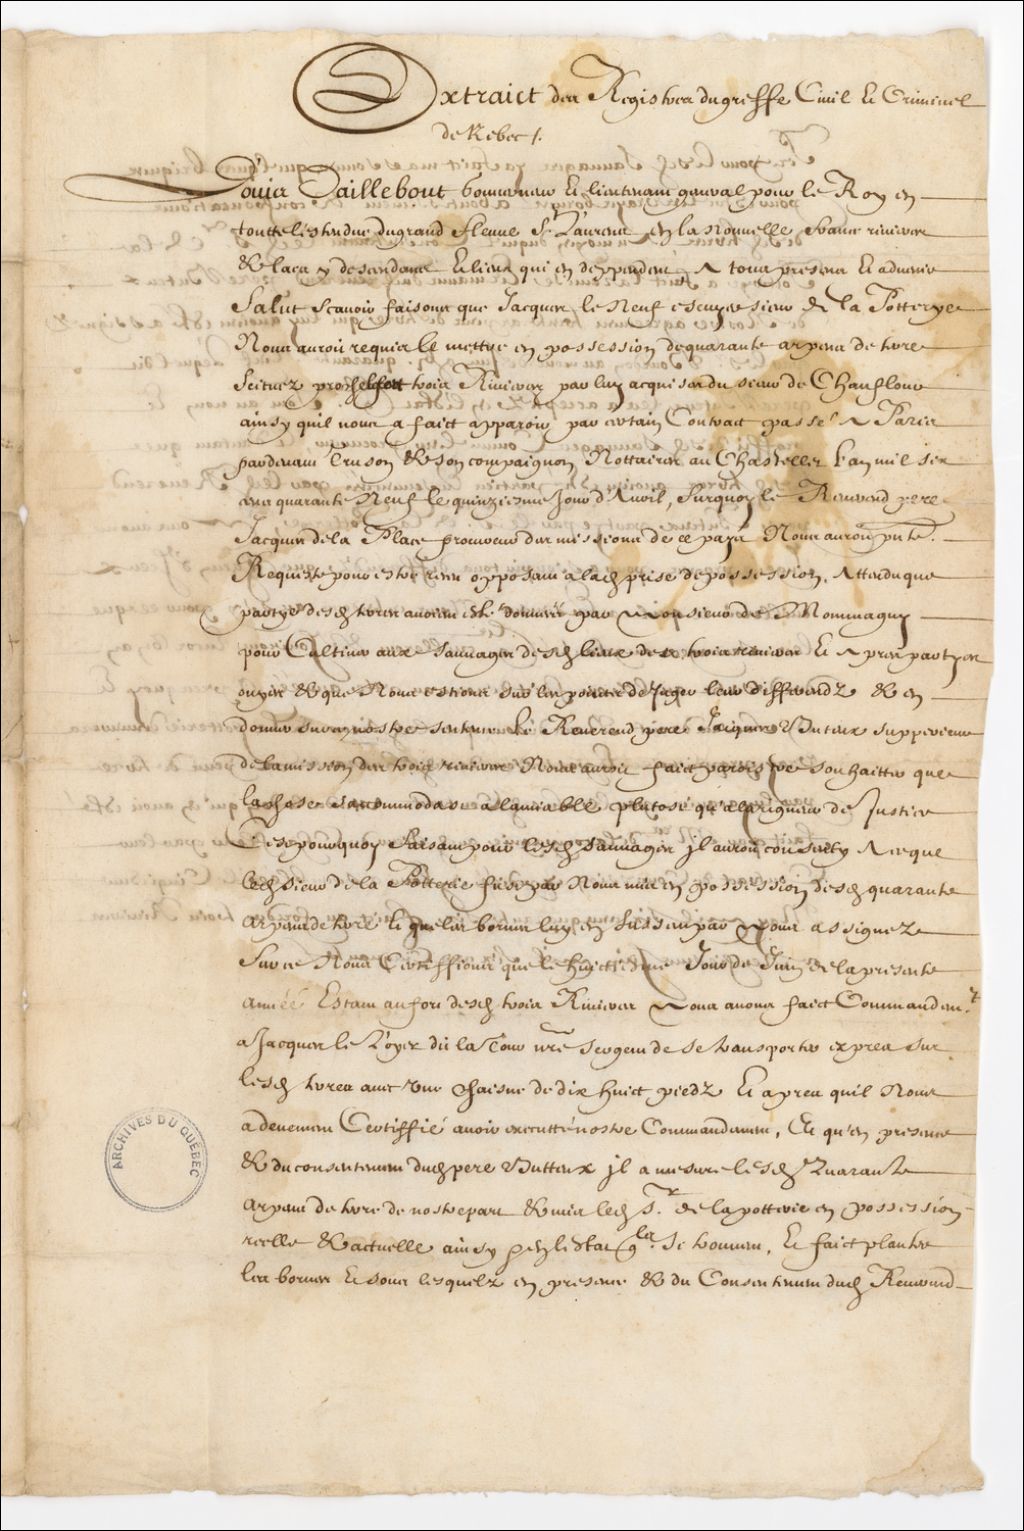 Extraict des Registres du greffe Civil et Criminel
de Kebec /.
Louis Daillebout Gouverneur et lieutenant general pour le Roy en
toutte lestendue du grand fleuve St Laurens en la Nouvelle france rivieres
& lacs y descendans et lieux qui en deppendent, A tous presens et advenir
Salut Scavoir faisons que Jacques le Neuf escuyer sieur de la Potterye
Nous auroit requis le mettre en possession de quarante arpens de terre
Scituez proche trois Rivieres par luy acquises du sieur de Chanflour
ainsy quil nous a faict apparoir par certain Contract passé A Paris
pardevant Cruson & son compaignon Nottaires au Chastellet l'an mil six
cens quarante Neuf le quinziesme Jour d'Avril, Surquoy le Reverend pere
Jacques de la Place procureur des missions de ce pays Nous auroit pnté
Requeste pour estre receu opposant a lad prise de possession, Attendu que
partye desd terres avoient esté données par Monsieur de Mommagny
pour Cultiver aux Sauvages desd lieux des trois rivieres Et Apres partyes
ouyes & que Nous estions sur les poinct de Juger leur differendz & en
donner sur ce nostre sentence Le Reverend pere Jacques Buteux supperieur
de la mission des trois rivieres Nous auroit faict paroistre souhaitter que
la chose s'accommodast a l'amiable plutost qu'a la rigueur de Justice
C'est pourquoy faisant pour lesd Sauvages jl auroit consenty A ce que
led sieur de la Potterie fust par Nous mis en possession desd quarante
arpens de terre et que les bornes luy en fussent par Nous assignez
Sur ce Nous Certiffions que le huictiesme Jour de Juin de la presente
année Estant au fort desd trois Rivieres Nous avons faict Commandemt
a Jacques le Loyer dit la Tour nre sergent de se transporter expres sur
lesd terres avec une chaisne de dix huict piedz Et apres quil Nous
a deuement Certiffié avoir executté nostre Commandement, Et qu'en presence
& du consentement dud pere Butteux jl a mesuré lesd Quarante
arpens de terre de nostre part & mis led Sr de la potterie en possession
reelle & actuelle ainsy quelles se trouvent, Et faict planter
les bornes Et sous lesquelz en presence & du Consentement dud Reverend
ARCHIVES DU QUÉBEC